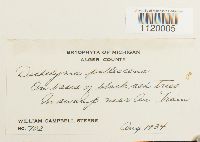 1120005
BRYOPHYTA OF MICHIGAN
ALGER COUNTY
On bases of black ash trees
In swamp near Au Train
WILLIAM CAMPBELL STEERE
NO. 702 Aug 1934